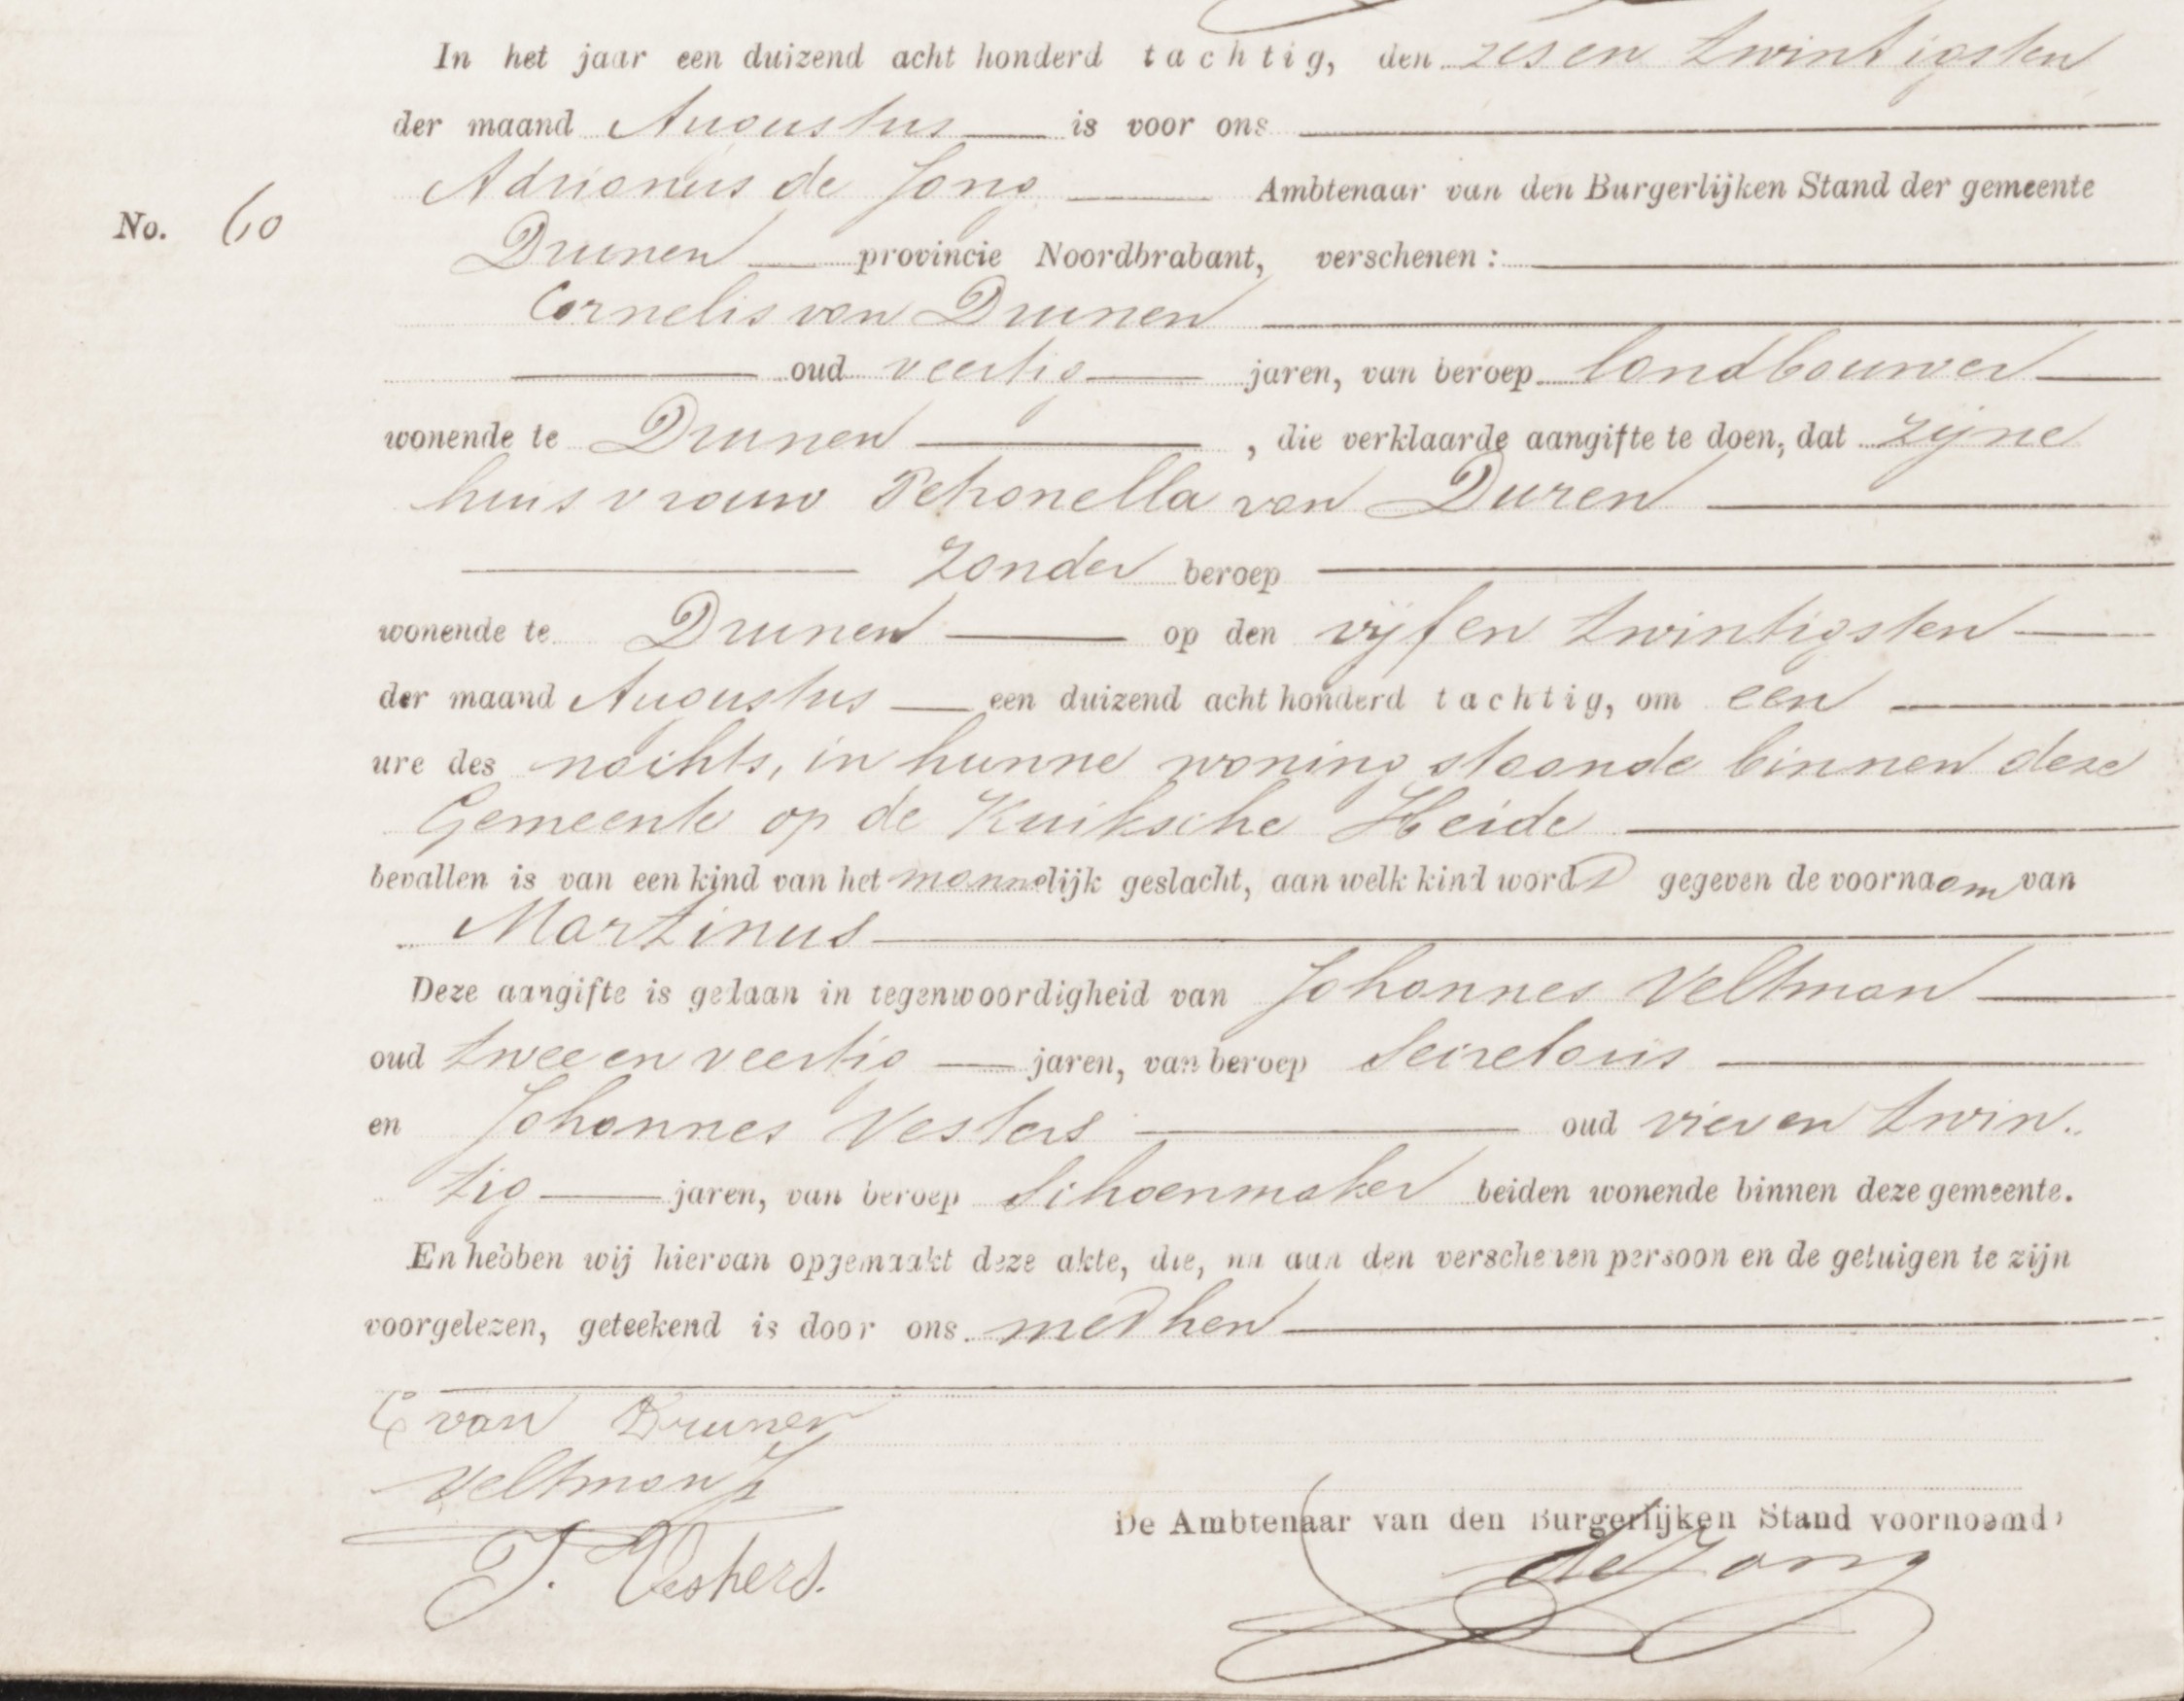 In het jaar een duizend acht honderd tachtig, den zesen twintigsten
der maand Augustus is voor ons
Adrianus de Jong Ambtenaar van den Burgerlijken Stand der gemeente
No. 60
Drunen provincie Noordbrabant, verschenen:
Cornelis van Drunen
oud veertig jaren, van beroep landbouwer
wonende te Drunen, die verklaarde aangifte te doen, dat zijne
huisvrouw Petronella van Duren
Zonder beroep
wonende te Drunen op den vijfen twintigsten
der maand Augustus een duizend acht honderd tachtig, om een
ure des nachts, in hunne woning staande binnen deze
Gemeente op de Kuiksche Heide
bevallen is van een kind van het mannelijk geslacht, aan welk kind wordt gegeven de voornaam van
Martinus
Deze aangifte is gedaan in tegenwoordigheid van Johannes Veltman
oud tweeen veertig jaren, van beroep Secretaris
en Johannes Vesters oud vieren twin.
tig jaren, van beroep Schoenmaker beiden wonende binnen deze gemeente.
En hebben wij hiervan opgemaakt deze akte, die, na aan den verschenen persoon en de getuigen te zijn
voorgelezen, geteekend is door ons met hen
C van Drunen
Veltman J
J. Vesters.
De Ambtenaar van den Burgerlijken Stand voornoemd,
de Jong